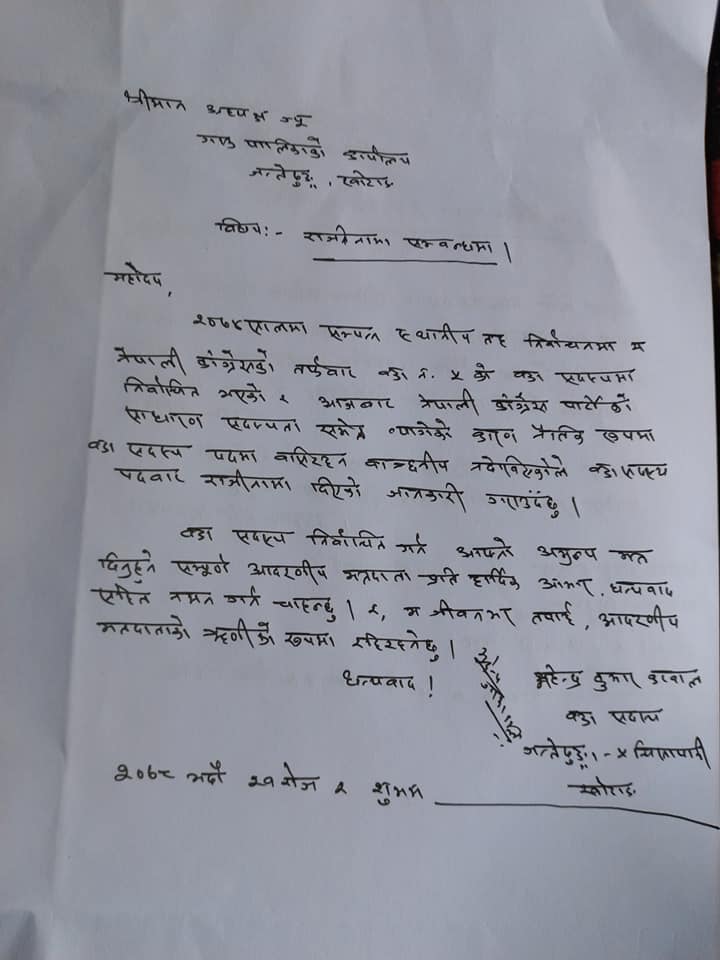 श्रीमान अध्यक्ष ज्यू
गाउँ पालिकाको कार्यालय
जन्तेढुङ्गा, खोटाङ
विषय:- राजीनामा सम्वन्धमा ।
महोदय,
२०७४ सालमा सम्पन्न स्थानीय तह निर्वाचनमा म
नेपाली कांग्रेसको तर्फवाट वडा नं. ५ को वडा सदस्यमा
निर्वाचित भएको र आजवाट नेपाली कांग्रेस पार्टीको
साधारण सदस्यता समेत त्यागेको कारण नैतिक रूपमा
वडा सदस्य पदमा वसिरहन वाञ्छनीय नदेखिएकोले वडा सदस्य
पदवाट राजीनामा दिएको जानकारी गराउँदछु ।
वडा सदस्य निर्वाचित गर्न आफ्नो अमुल्य मत
दिनुहुने सम्पूर्ण आदरणीय मतदाता प्रति हार्दिक आभार, धन्यवाद
सहित नमन गर्न चाहन्छु । र, म जीवनभर तपाई, आदरणीय
मतदाताको ऋणीकै रूपमा रहिरहनेछु ।
धन्यवाद !
महेन्द्र कुमार
वडा सदस्य
जन्तेढुङ्गा - ५ चिसापानी
खोटाङ
२०७८ भदौ २९ रोज २ शुभम